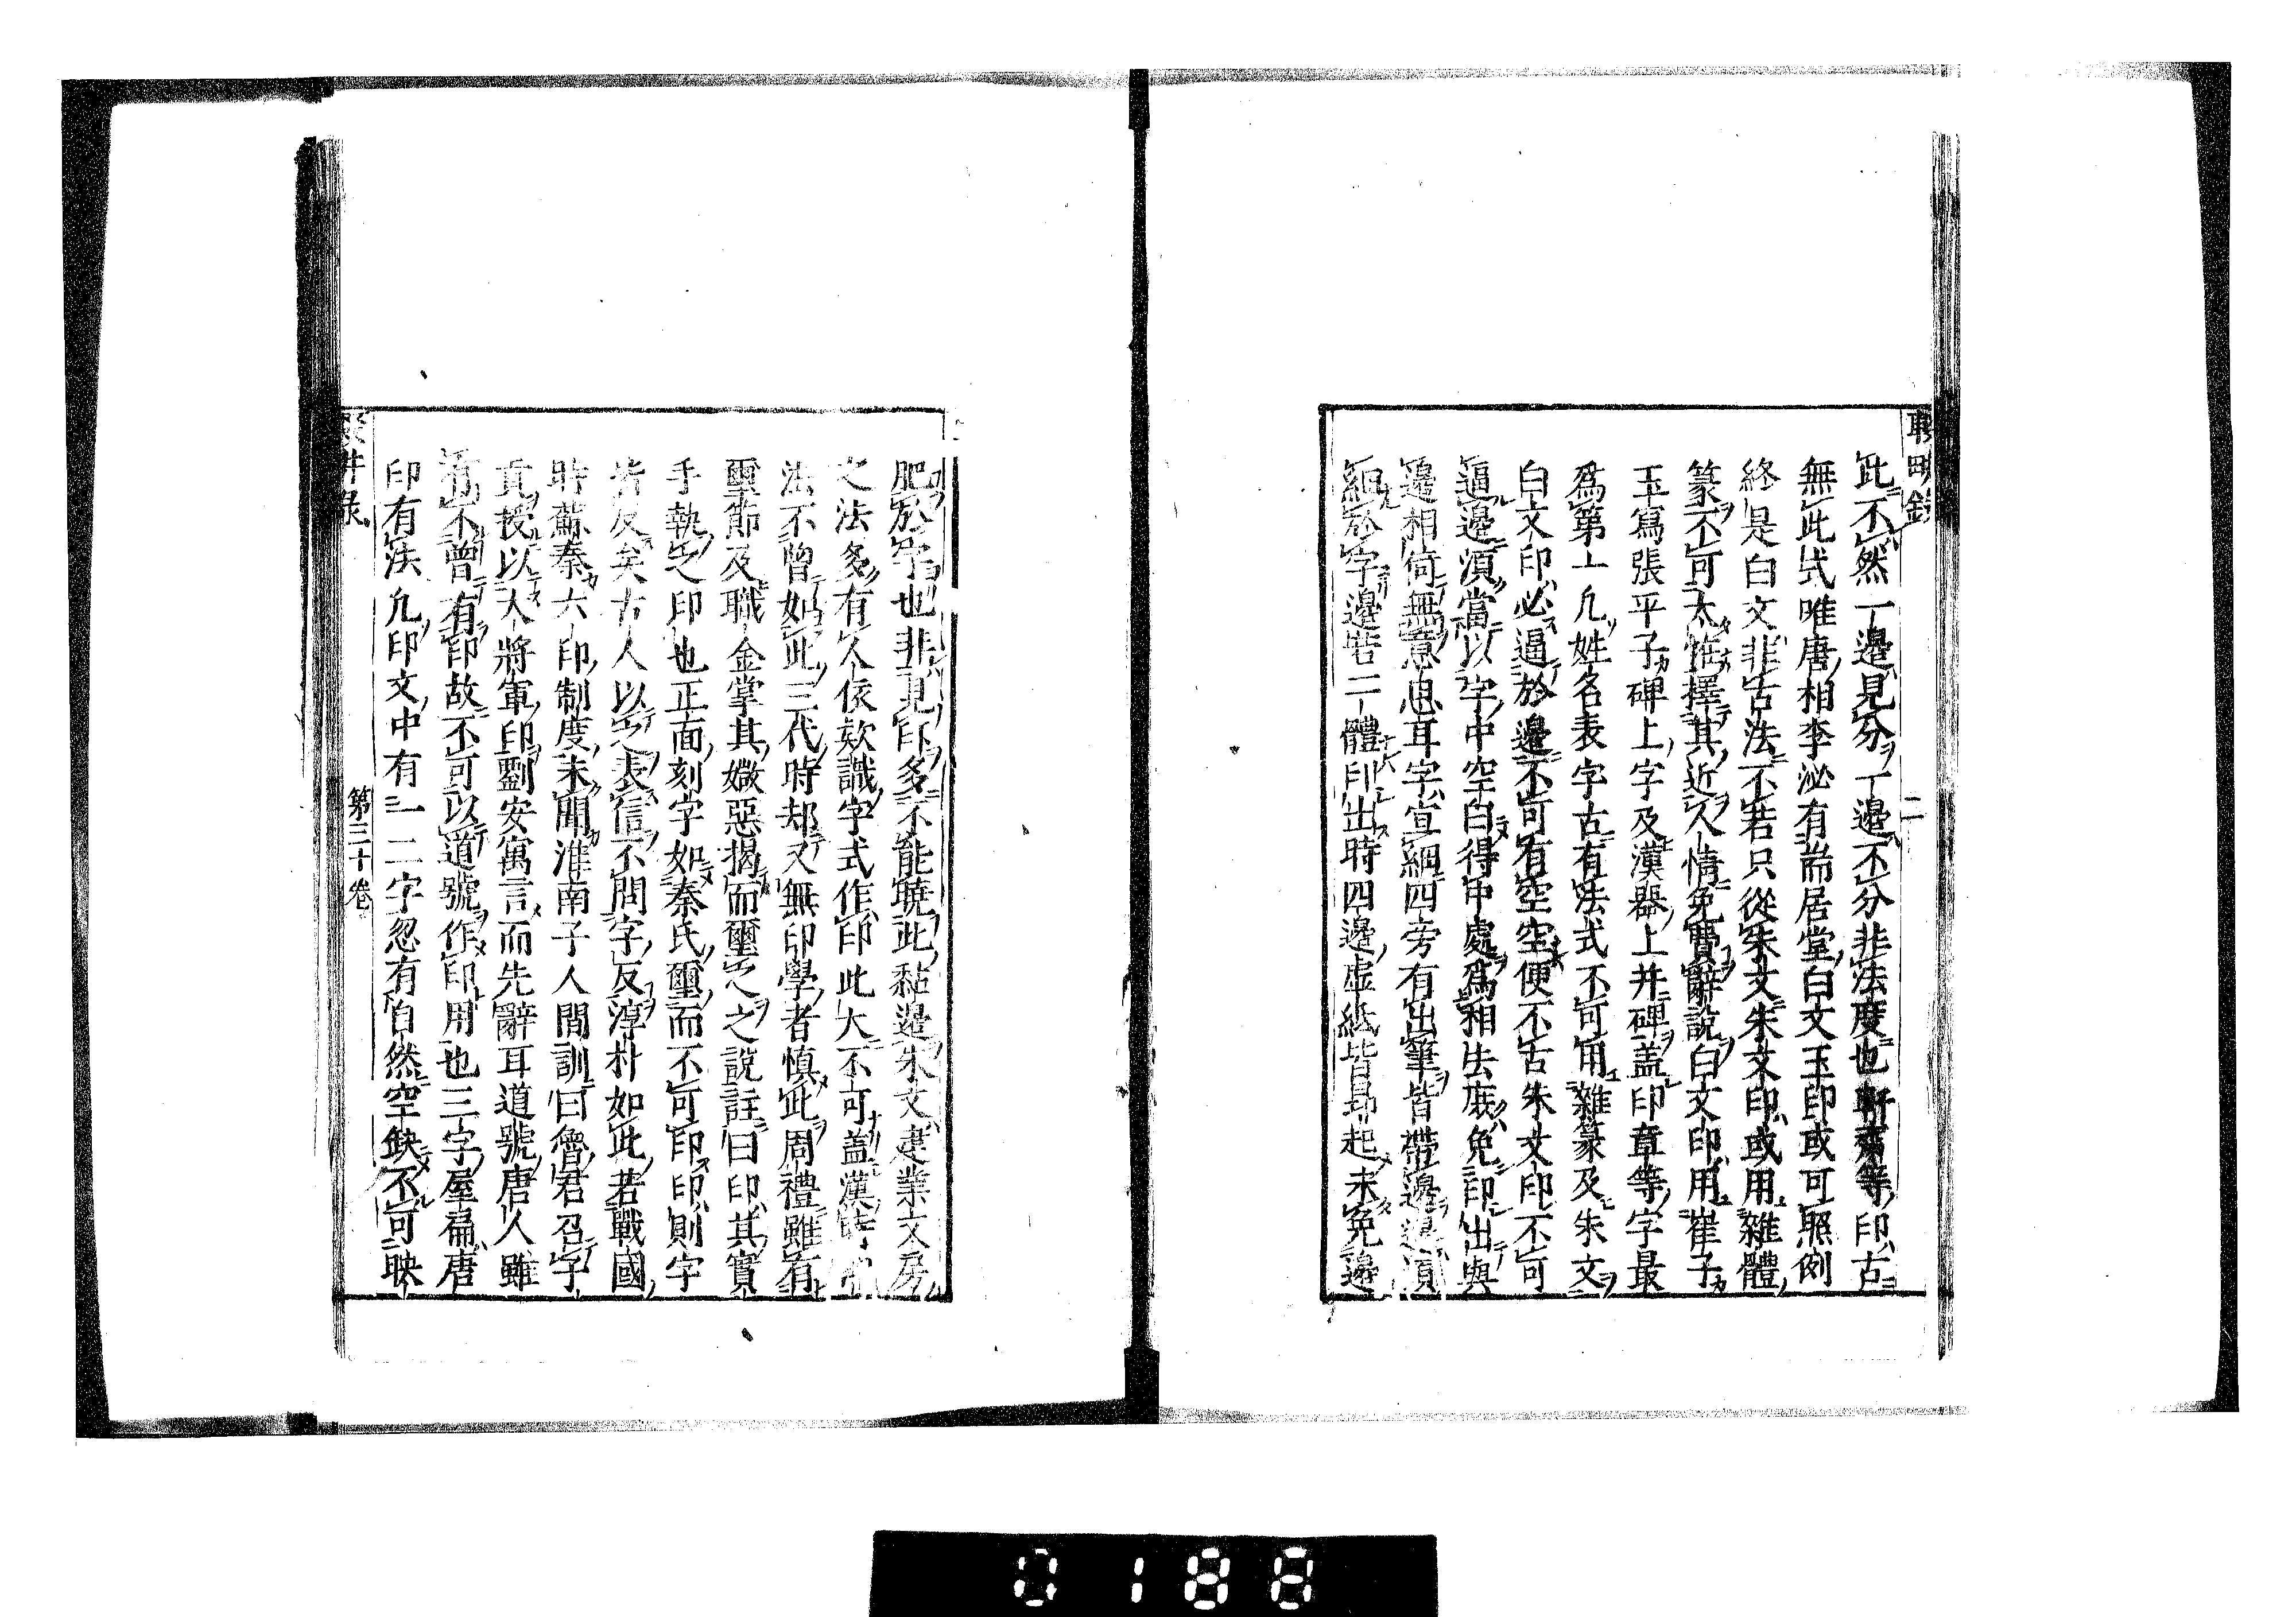 輟畊錄 二
此不然一邊見分一邊不分非法度也軒齋等印古
無此式唯唐相李泌有耑居堂白文玉印或可照例
終是白文非古法不若只從朱文朱文印或用雜體
篆不可太怪擇其近人情免費辭說白文印用崔子
玉寫張平子碑上字及漢器上并碑盖印章等字最
爲第一凡姓名表字古有法式不可用雜篆及朱文
白文印必逼於邊不可有空空便不古朱文印不可
逼邊須當以字中空白得中處爲相去庶免印出與
邊相倚無意思耳字宜細四旁有出筆皆帶邊邊須
細於字邊若二體印出時四邊虛紙皆昂起未免邊
肥於字也非見印多不能曉此黏邊朱文建業文房
之法多有人依欵識字式作印此大不可盖漢時印
法不曾如此三代時却又無印學者慎此周禮雖有
璽節及職金掌其媺惡揭而璽之之說註曰印其實
手執之印也正面刻字如秦氏璽而不可印印則字
皆反矣古人以之表信不問字反淳朴如此若戰國
時蘇秦六印制度未聞淮南子人間訓曰魯君召子
貢授以大將軍印劉安寓言而先辭耳道號唐人雖
有不曾有印故不可以道號作印用也三字屋扁唐
印有法凡印文中有一二字忽有自然空缺不可映
錄 第三十卷
0188